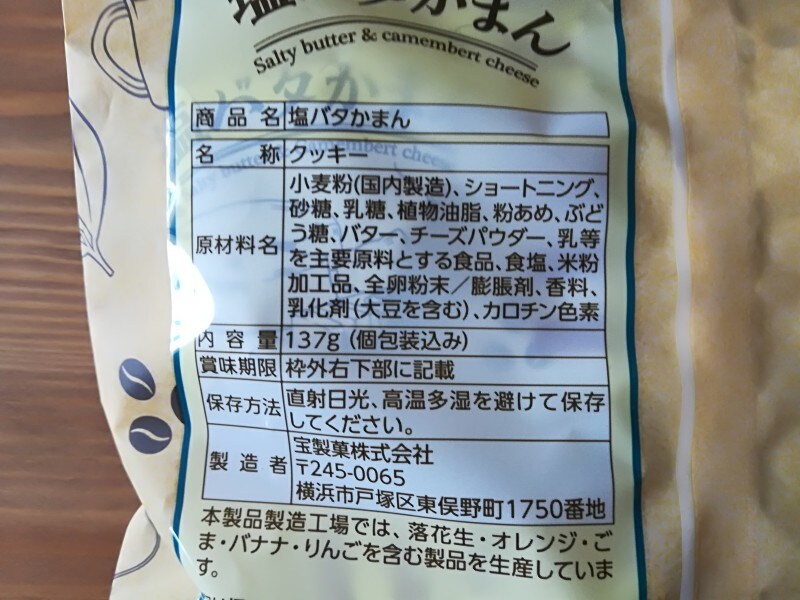 塩バタかまん
Salty butter & camembert cheese
商品名 塩バタかまん
名称 クッキー
原材料名 小麦粉(国内製造)、ショートニング、
砂糖、乳糖、植物油脂、粉あめ、ぶど
う糖、バター、チーズパウダー、乳等
を主要原料とする食品、食塩、米粉
加工品、全卵粉末／膨脹剤、香料、
乳化剤(大豆を含む)、カロチン色素
内容量 137g (個包装込み)
賞味期限 枠外右下部に記載
保存方法 直射日光、高温多湿を避けて保存
してください。
製造者 宝製菓株式会社
〒245-0065
横浜市戸塚区東俣野町1750番地
本製品製造工場では、落花生・オレンジ・ご
ま・バナナ・りんごを含む製品を生産していま
す。